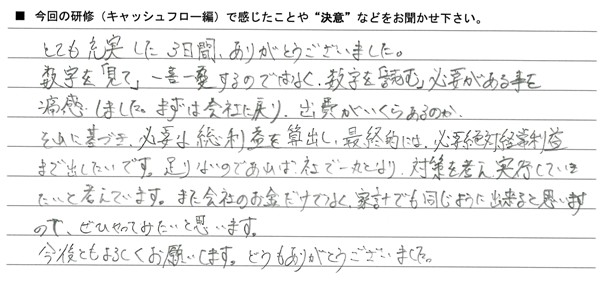 ■ 今回の研修（キャッシュフロー編）で感じたことや“決意”などをお聞かせ下さい。
とても充実した3日間、ありがとうございました。
数字を「見て」一喜一憂するのではなく、数字を「読む」必要がある事を
痛感しました。まずは会社に戻り、出費がいくらあるのか、
それに基づき、必要な総利益を算出し、最終的には、必要絶対経常利益
まで出したいです。足りないのであれば、社で一丸となり、対策を考え、実行していき
たいと考えています。また会社のお金だけでなく、家計でも同じように出来ると思います
ので、ぜひやってみたいと思います。
今後ともよろしくお願いします。どうもありがとうございました。